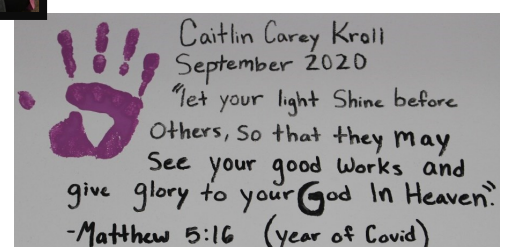 Caitlin Carey Kroll
September 2020
"let your light Shine before
Others, So that they may
See your good works and
give glory to your God In Heaven."
-Matthew 5:16 (year of Covid)